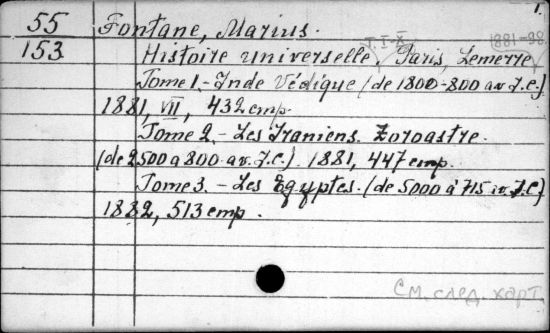 1.
55 Fontane, Marius.
153 Histoire universelle, T. I-X. Paris, Lemerre 1881-98.
Tome 1.- Inde Védique (de 1800-800 av. J.C.)
1881, VII, 432 стр.
Tome 2.- Les Iraniens. Zoroastre.
(de 2500 à 800 av. J.C.). 1881, 447 стр.
Tome 3. - Les Egyptes. (de 5000 à 715 av. J.C.)
1882, 513 стр.
См. след. карт.